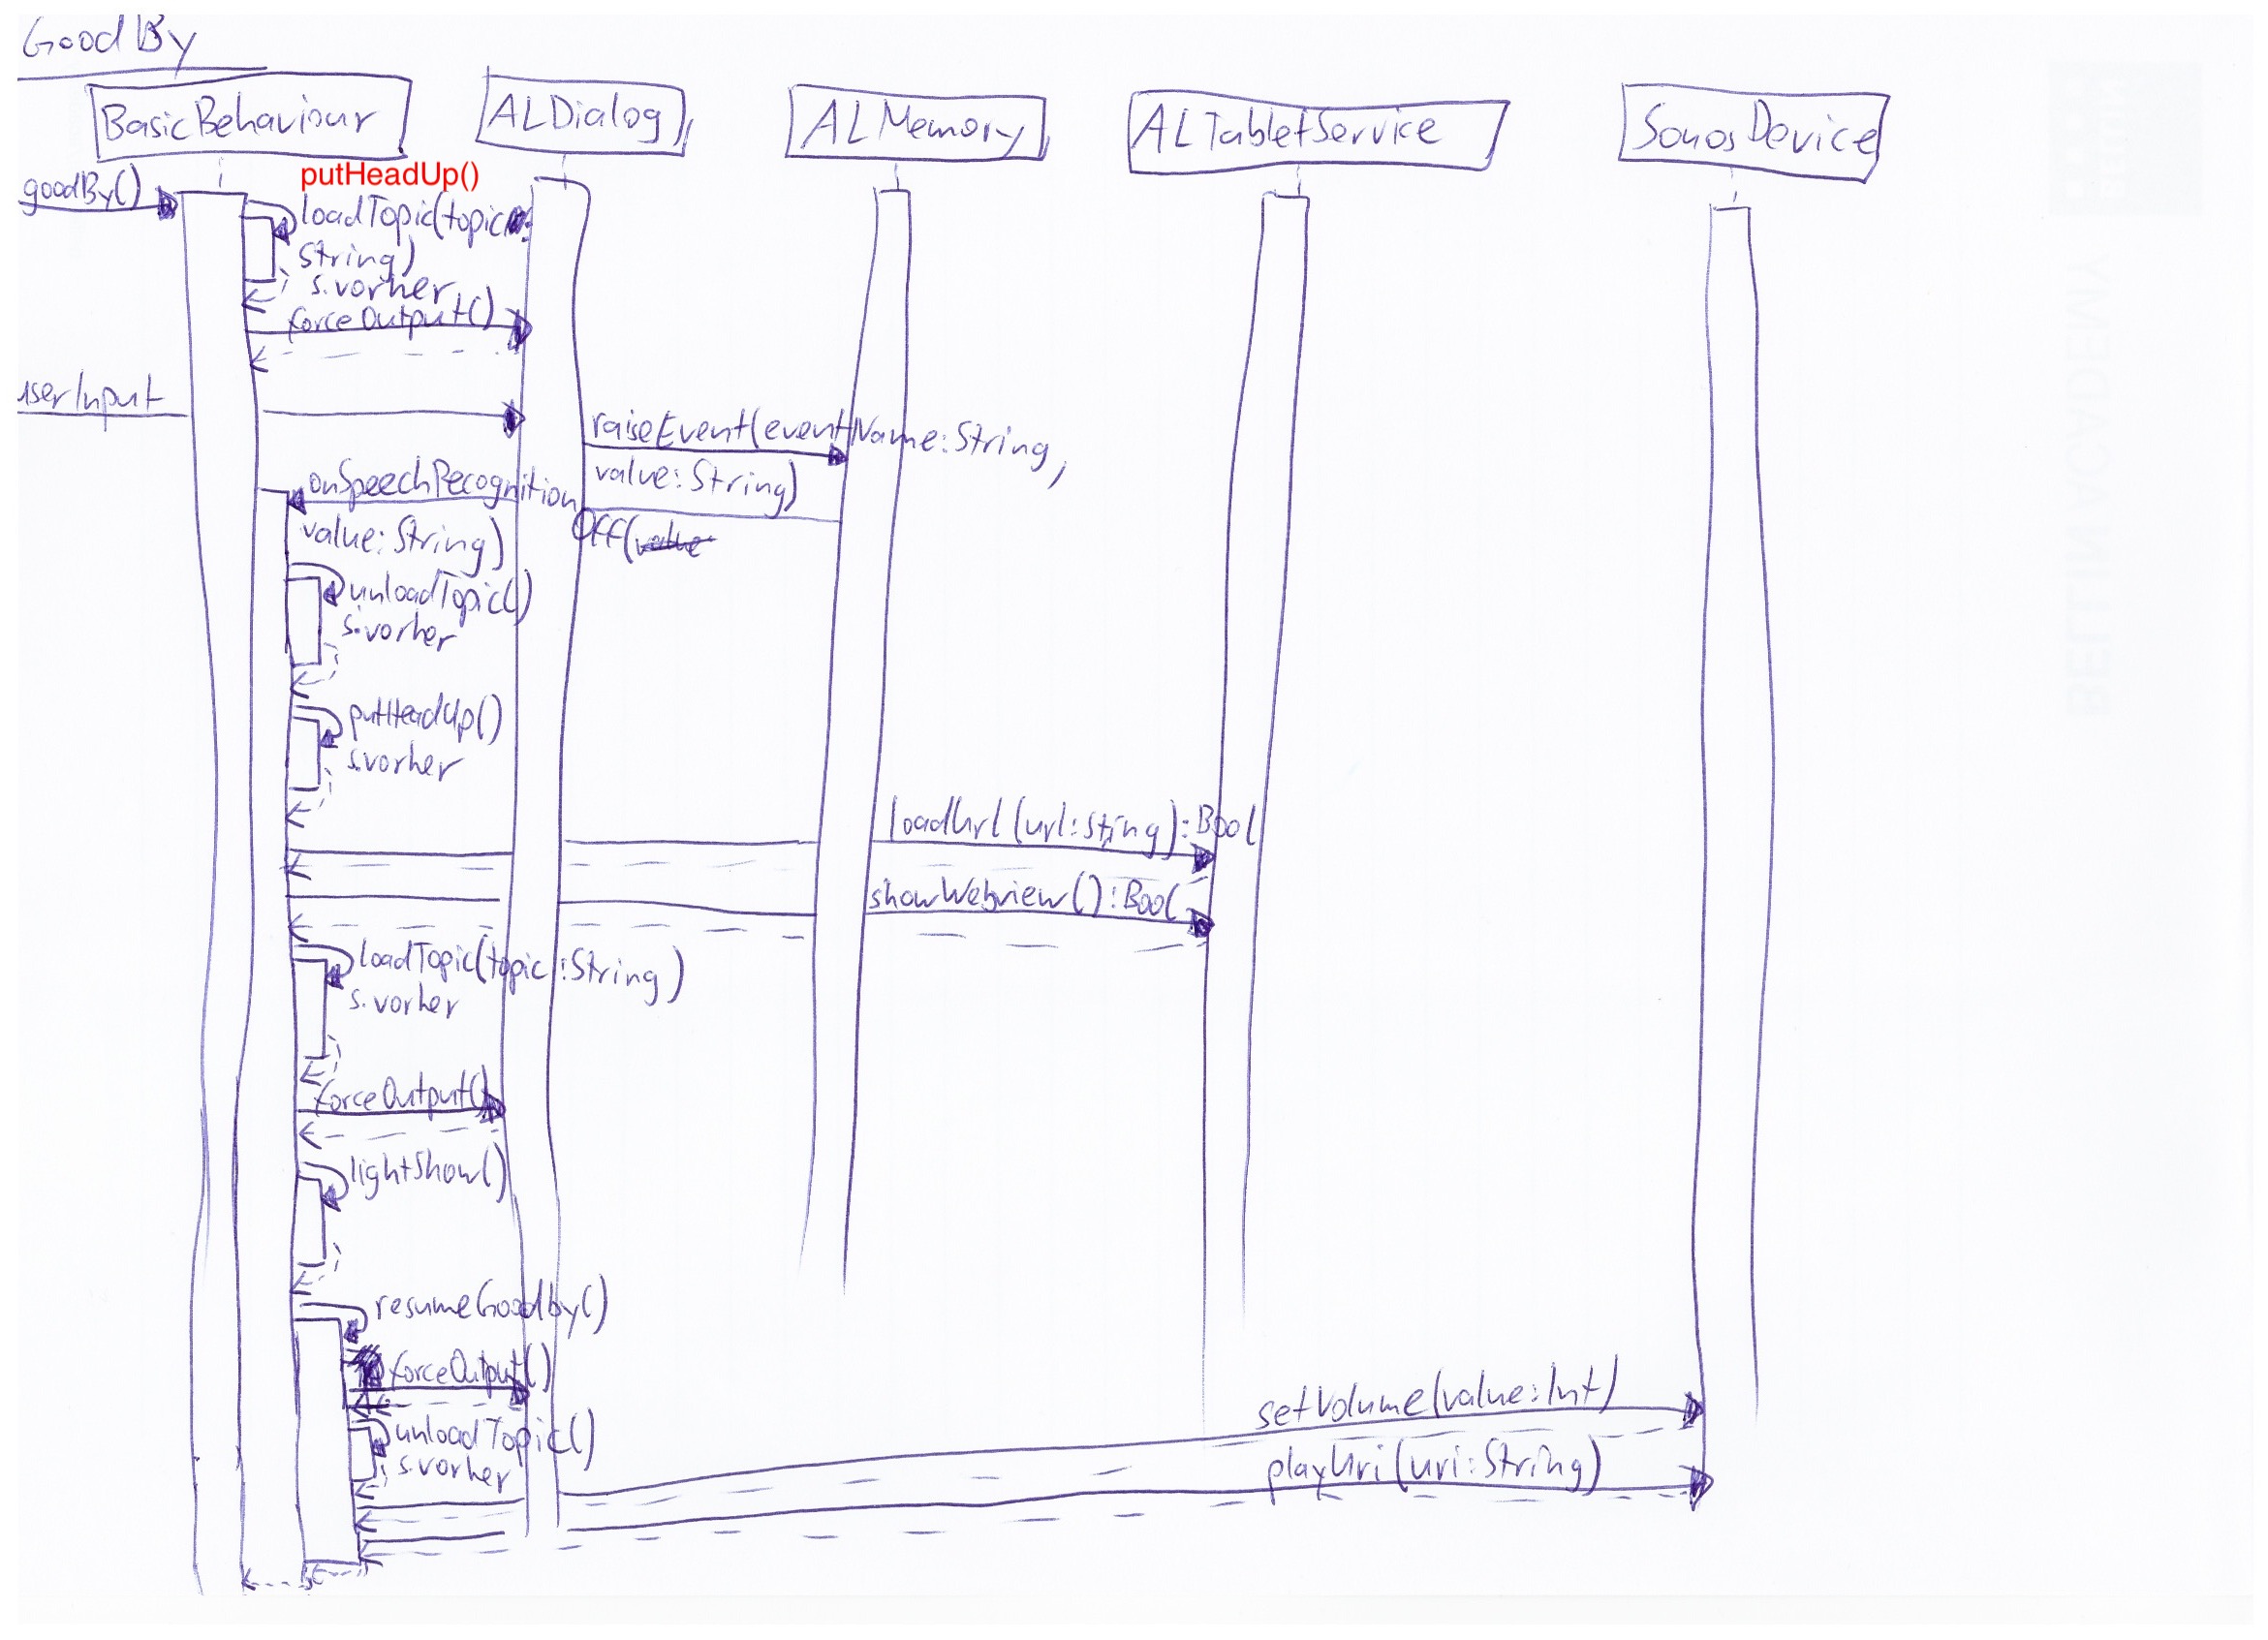 GoodBy
BasicBehaviour
ALDialog
ALMemory
ALTabletService
SonosDevice
putHeadUp()
goodBy()
loadTopic(topic:
String)
s.vorher
forceOutput()
userInput
raiseEvent(eventName:String,
value:String)
onSpeechRecognition
Off(value
value:String)
unloadTopic()
s.vorher
putHeadUp()
s.vorher
loadUrl(url:String):Bool
showWebview():Bool
loadTopic(topic:String)
s.vorher
forceOutput()
lightShow()
resumeGoodby()
forceOutput()
setVolume(value:Int)
unloadTopic()
s.vorher
playUri(uri:String)
BELLIN ACADEMY